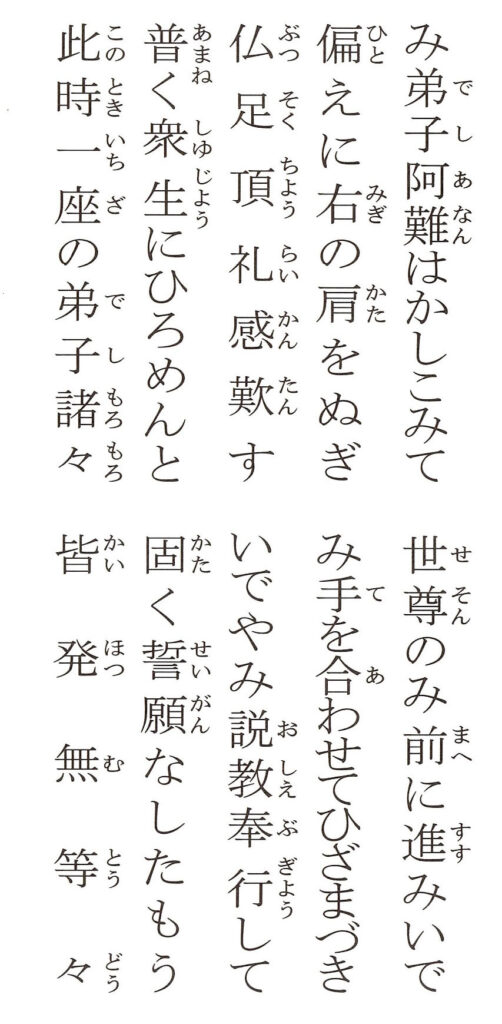 み弟子阿難はかしこみて
世尊のみ前に進みいで
偏えに右の肩をぬぎ
み手を合わせてひざまづき
仏足頂礼感歎す
いでやみ説教奉行して
普く衆生にひろめんと
固く誓願なしたもう
此時一座の弟子諸々
皆発無等々